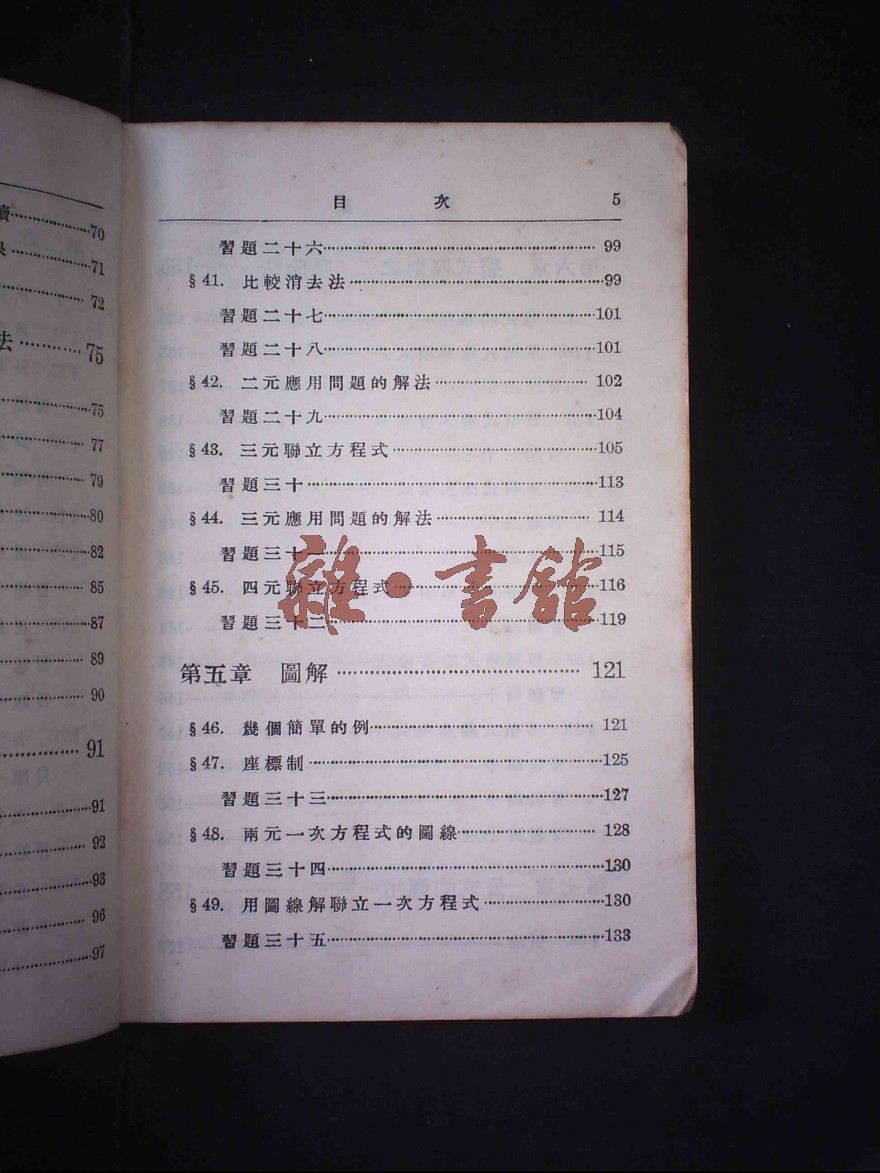 70
71
72
法 75
75
77
79
80
82
85
87
89
90
91
91
92
93
96
97
目 次 5
習題二十六 99
§41. 比較消去法 99
習題二十七 101
習題二十八 101
§42. 二元應用問題的解法 102
習題二十九 104
§43. 三元聯立方程式 105
習題三十 113
§44. 三元應用問題的解法 114
習題三十一 115
§45. 四元聯立方程式 116
習題三十二 119
雜·書館
第五章 圖解 121
§46. 幾個簡單的例 121
§47. 座標制 125
習題三十三 127
§48. 兩元一次方程式的圖線 128
習題三十四 130
§49. 用圖線解聯立一次方程式 130
習題三十五 133